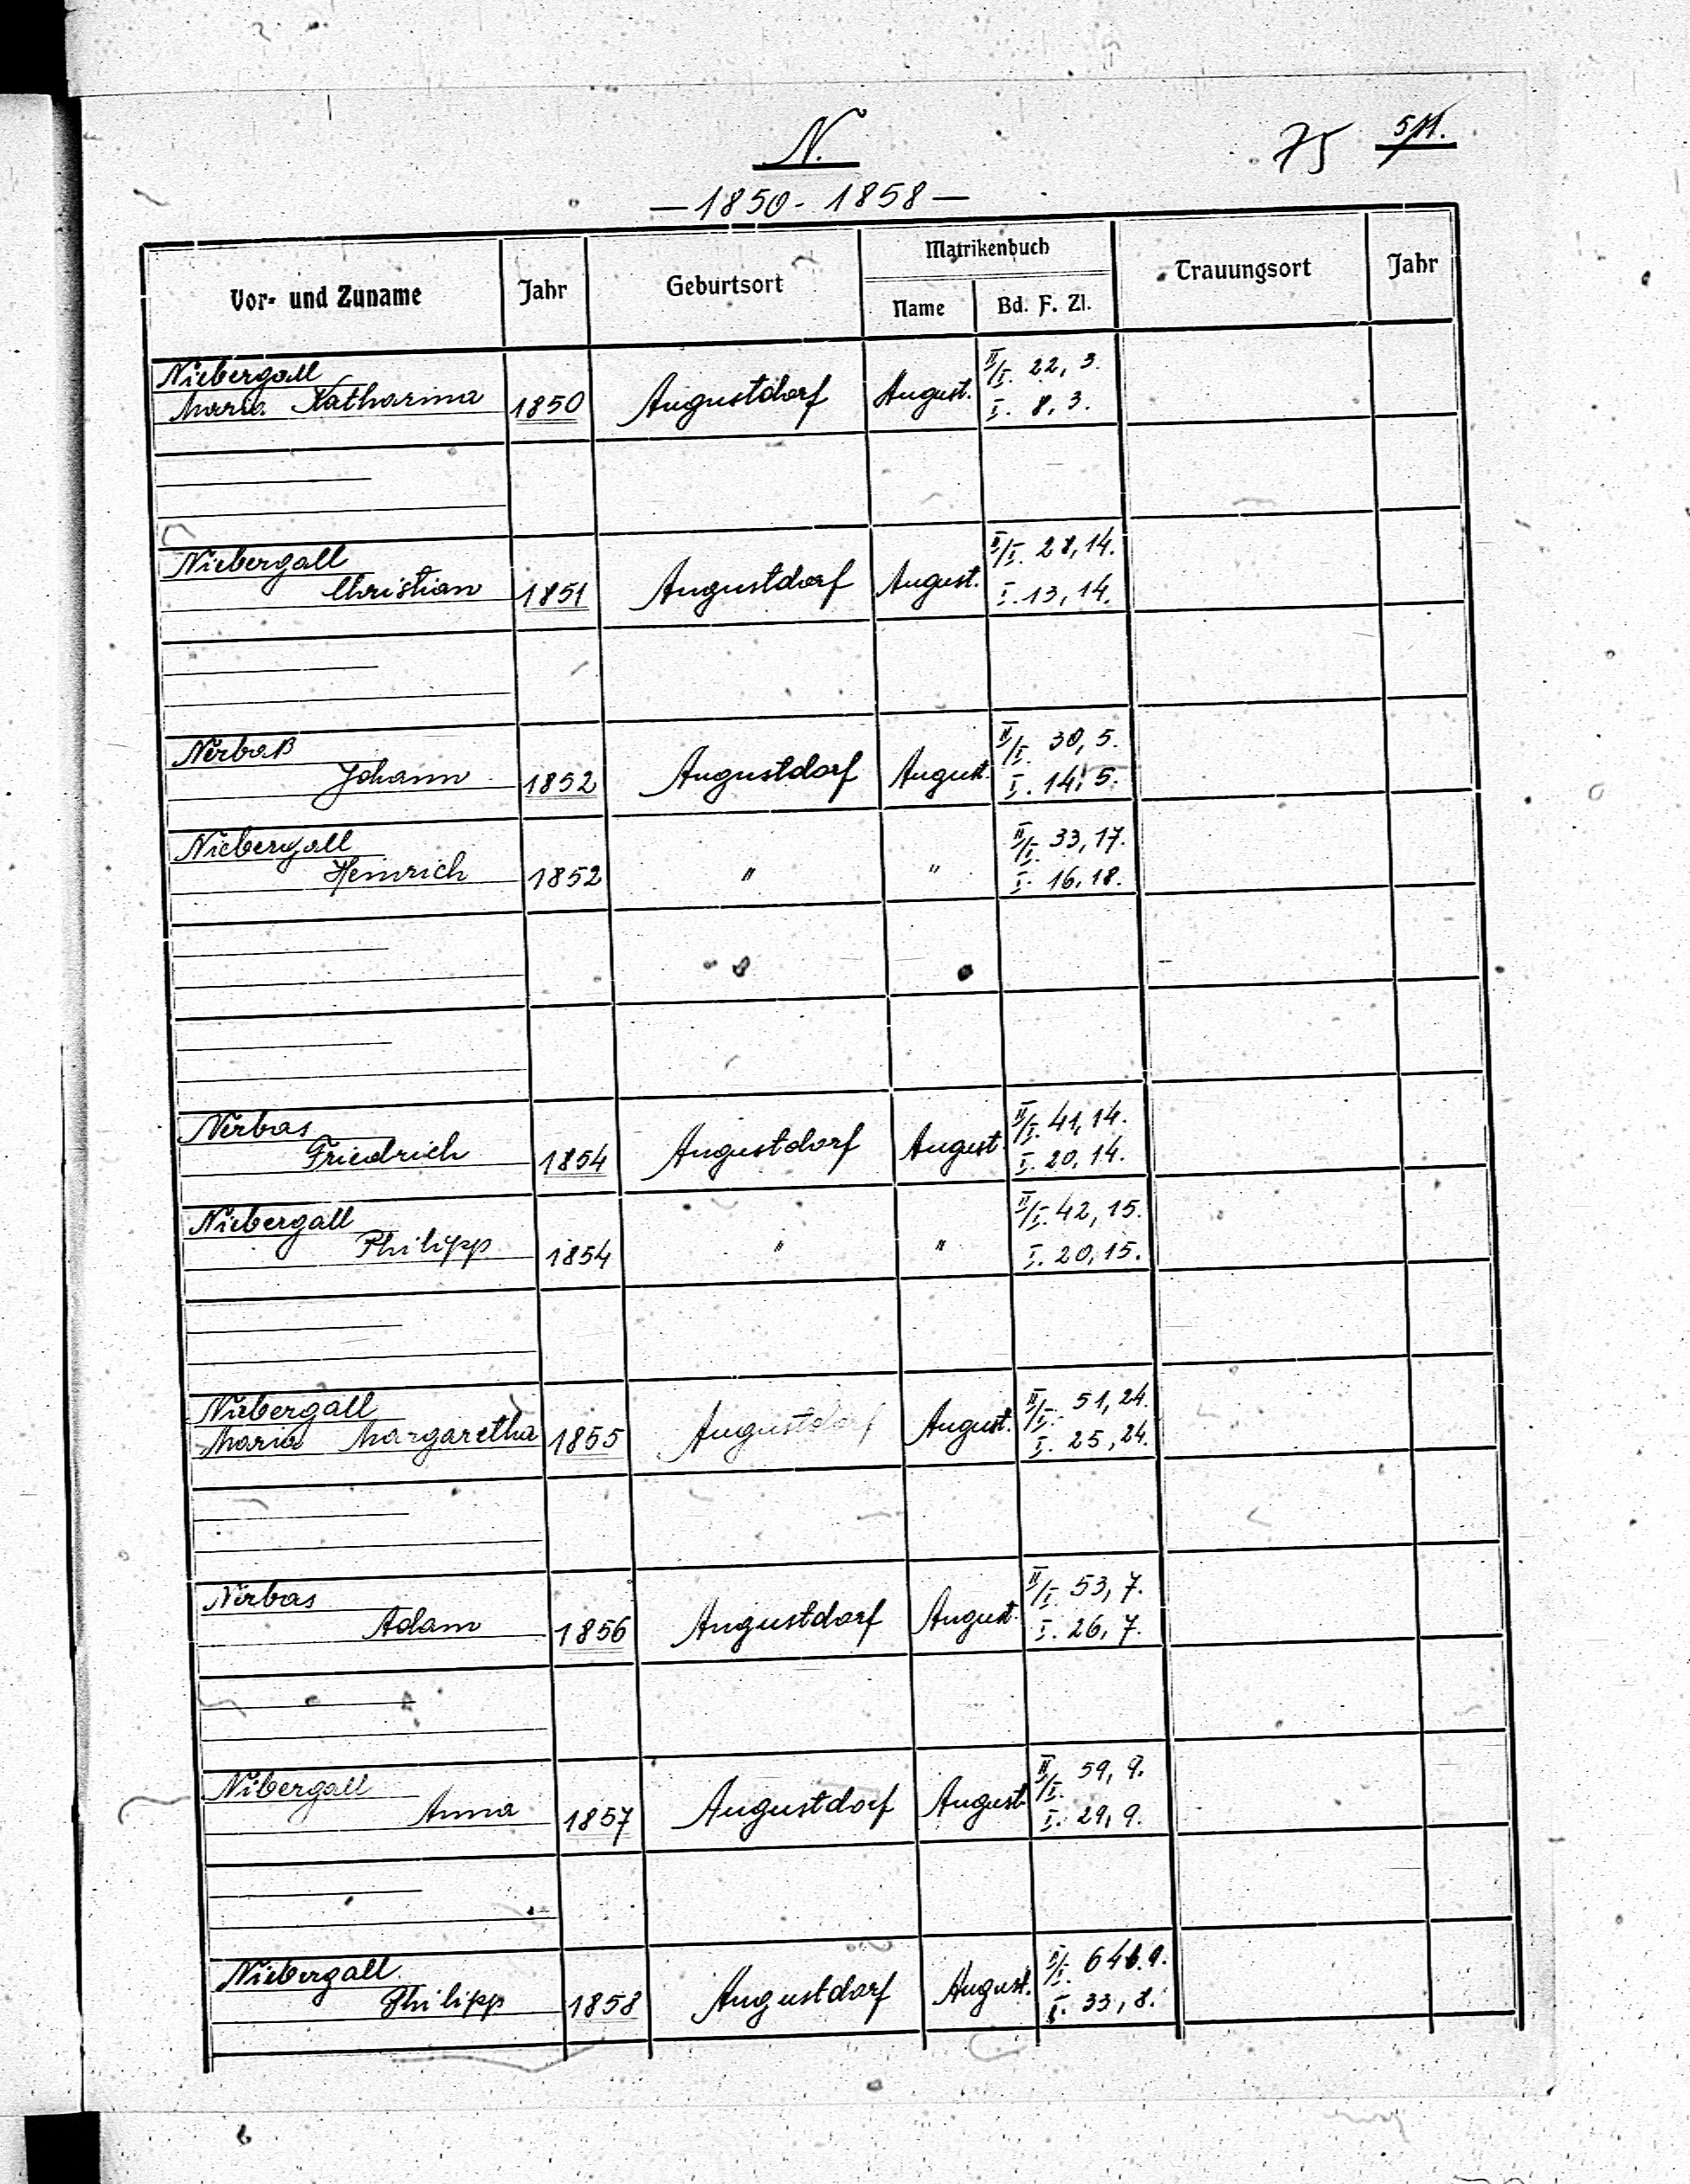 N.
75 511.
— 1850 - 1858 —
Vor- und Zuname Jahr Geburtsort Matrikenbuch Trauungsort Jahr
Name Bd. F. Zl.
Niebergall II/I. 22, 3.
Maria Katharina 1850 Augustdorf August. I. 8, 3.
Niebergall II/I. 28, 14.
Christian 1851 Augustdorf August. I. 13, 14.
Nerbaß II/I. 30, 5.
Johann 1852 Augustdorf August. I. 14, 5.
Niebergall II/I. 33, 17.
Heinrich 1852 " " I. 16, 18.
Nerbas II/I. 41, 14.
Friedrich 1854 Augustdorf August. I. 20, 14.
Niebergall II/I. 42, 15.
Philipp 1854 " " I. 20, 15.
Niebergall II/I. 51, 24.
Maria Margaretha 1855 Augustdorf August. I. 25, 24.
Nerbas II/I. 53, 7.
Adam 1856 Augustdorf August. I. 26, 7.
Nibergall II/I. 59, 9.
Anna 1857 Augustdorf August. I. 29, 9.
Niebergall II/I.
Philipp 1858 Augustdorf August. I. 33, 8.